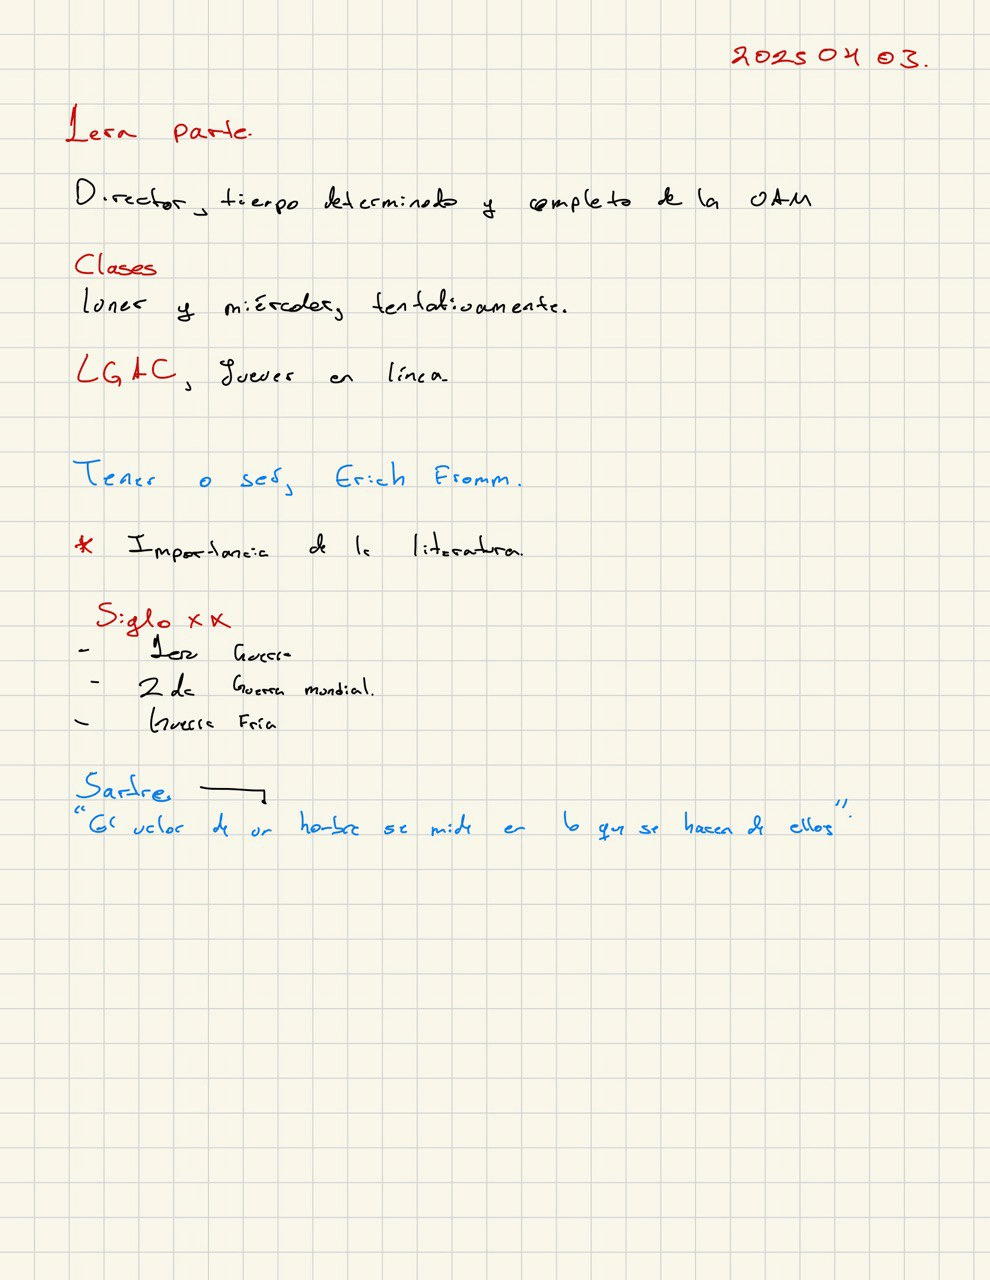 2025 04 03.
1era parte.
Director, tiempo determinado y completo de la OAM
Clases
lunes y miércoles, tentativamente.
LGAC, Jueves en línea.
Tener o ser, Erich Fromm.
* Importancia de la literatura.
Siglo XX
- 1era Guerra
- 2da Guerra mundial.
- Guerra Fría
Sartre
"El valor de un hombre se mide en lo que se hacen de ellos".